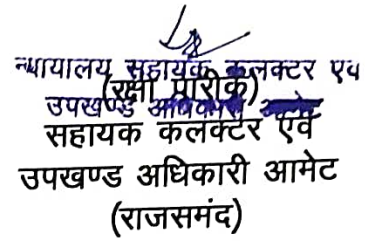 न्यायालय सहायक कलक्टर एव
(रक्षा पारीक)
उपखण्ड
सहायक कलक्टर एवं
उपखण्ड अधिकारी आमेट
(राजसमंद)